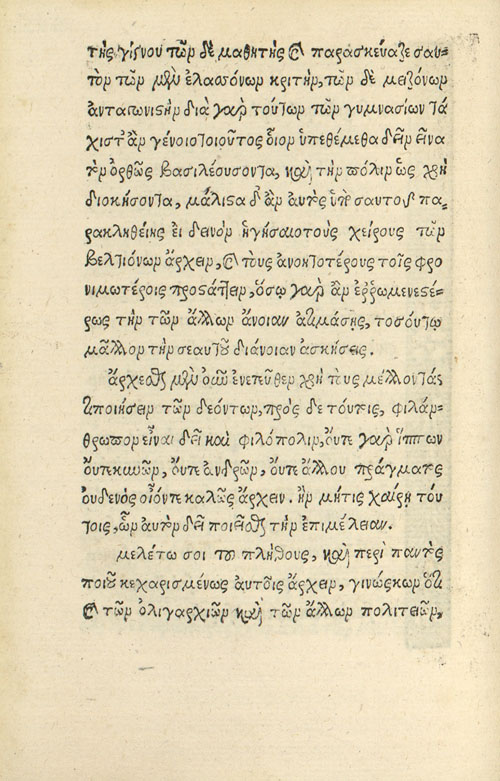 τὴς γίγνου τῶν δὲ μαθητὴς καὶ παρασκεύαζε σαυ-
τὸν τῶν μὲν ἐλασσόνων κριτὴν, τῶν δὲ μειζόνων
ἀνταγωνιστὴν διὰ γὰρ τούτων τῶν γυμνασίων τά
χιστ' ἂν γένοιο τοιοῦτος οἷον ὑπεθέμεθα δεῖν εἶνα
τὸν ὀρθῶς βασιλεύσοντα, καὶ τὴν πόλιν ὡς χρὴ
διοικήσοντα, μάλιστα δ' ἂν αὐτὸς ὑπὸ σαυτοῦ πα-
ρακληθείης εἰ δεινὸν ἡγήσαιο τοὺς χείρους τῶν
βελτιόνων ἄρχειν, καὶ τοὺς ἀνοητοτέρους τοῖς φρο
νιμωτέροις προστάττειν, ὅσῳ γὰρ ἂν ἐρρωμενεστέ-
ρως τὴν τῶν ἄλλων ἄνοιαν ἀτιμάσης, τοσούτῳ
μᾶλλον τὴν σεαυτοῦ διάνοιαν ἀσκήσεις.
ἄρχεσθαι μὲν οὖν ἐντεῦθεν χρὴ τοὺς μέλλοντάς
τι ποιήσειν τῶν δεόντων, πρὸς δὲ τούτοις, φιλάν-
θρωπον εἶναι δεῖ καὶ φιλόπολιν, οὔτε γὰρ ἵππων
οὔτε κυνῶν, οὔτε ἀνδρῶν, οὔτε ἄλλου πράγματος
οὐδενὸς οἷόν τε καλῶς ἄρχειν. ἢν μή τις χαίρῃ τού
τοις, ὧν αὐτὸν δεῖ ποιεῖσθαι τὴν ἐπιμέλειαν.
μελέτω σοι τοῦ πλήθους, καὶ περὶ παντὸς
ποιοῦ κεχαρισμένως αὐτοῖς ἄρχειν, γινώσκων ὅτι
καὶ τῶν ὀλιγαρχιῶν καὶ τῶν ἄλλων πολιτειῶν,